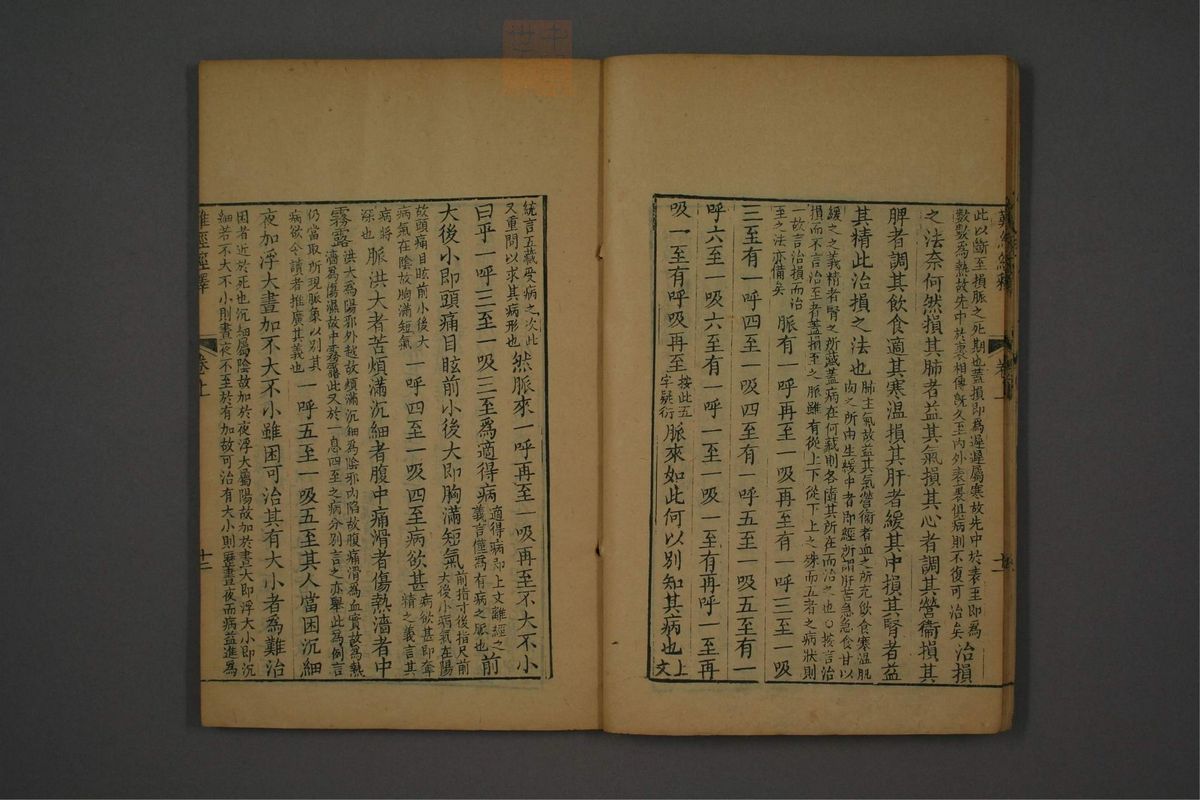 難經經釋
卷上
十一
此以斷至損脈之死期也蓋損即爲遲遲屬寒故先中於表至即爲
數數爲熱故先中於裏相傳旣久至內外表裏俱病則不復可治矣治損
之法奈何然損其肺者益其氣損其心者調其營衞損其
脾者調其飮食適其寒溫損其肝者緩其中損其腎者益
其精此治損之法也肺主氣故益其氣營衞者血之所充飮食寒溫肌
肉之所由生緩中者即經所謂肝苦急急食甘以
緩之之義精者腎之所藏蓋病在何藏則各隨其所在而治之也○按言治
損而不言治至者蓋損至之脈雖有從上下從下上之殊而五者之病狀則
一故言治損而治
至之法亦備矣脈有一呼再至一吸再至有一呼三至一吸
三至有一呼四至一吸四至有一呼五至一吸五至有一
呼六至一吸六至有一呼一至一吸一至有再呼一至再
吸一至有呼吸再至按此五
字疑衍脈來如此何以別知其病也上文
統言五藏受病之次此
又重問以求其病形也然脈來一呼再至一吸再至不大不小
曰平一呼三至一吸三至爲適得病適得病即上文離經之
義言僅爲有病之脈也前
大後小即頭痛目眩前小後大即胸滿短氣前指寸後指尺前
大後小病氣在陽
故頭痛目眩前小後大
病氣在陰故胸滿短氣一呼四至一吸四至病欲甚病欲甚即奪
精之義言其
病將
深也脈洪大者苦煩滿沉細者腹中痛滑者傷熱濇者中
霧露洪大爲陽邪外越故煩滿沉細爲陰邪內陷故腹痛滑爲血實故爲熱
濇爲傷濕故中霧露此又於一息四至之病分別言之亦舉此爲例言
仍當取所現脈象以別其
病欲令讀者推廣其義也一呼五至一吸五至其人當困沉細
夜加浮大晝加不大不小雖困可治其有大小者爲難治
困者近於死也沉細屬陰故加於夜浮大屬陽故加於晝大即浮大小即沉
細若不大不小則晝夜不至於有加故可治有大小則歷晝夜而病益進爲
難經經釋
卷上
十二